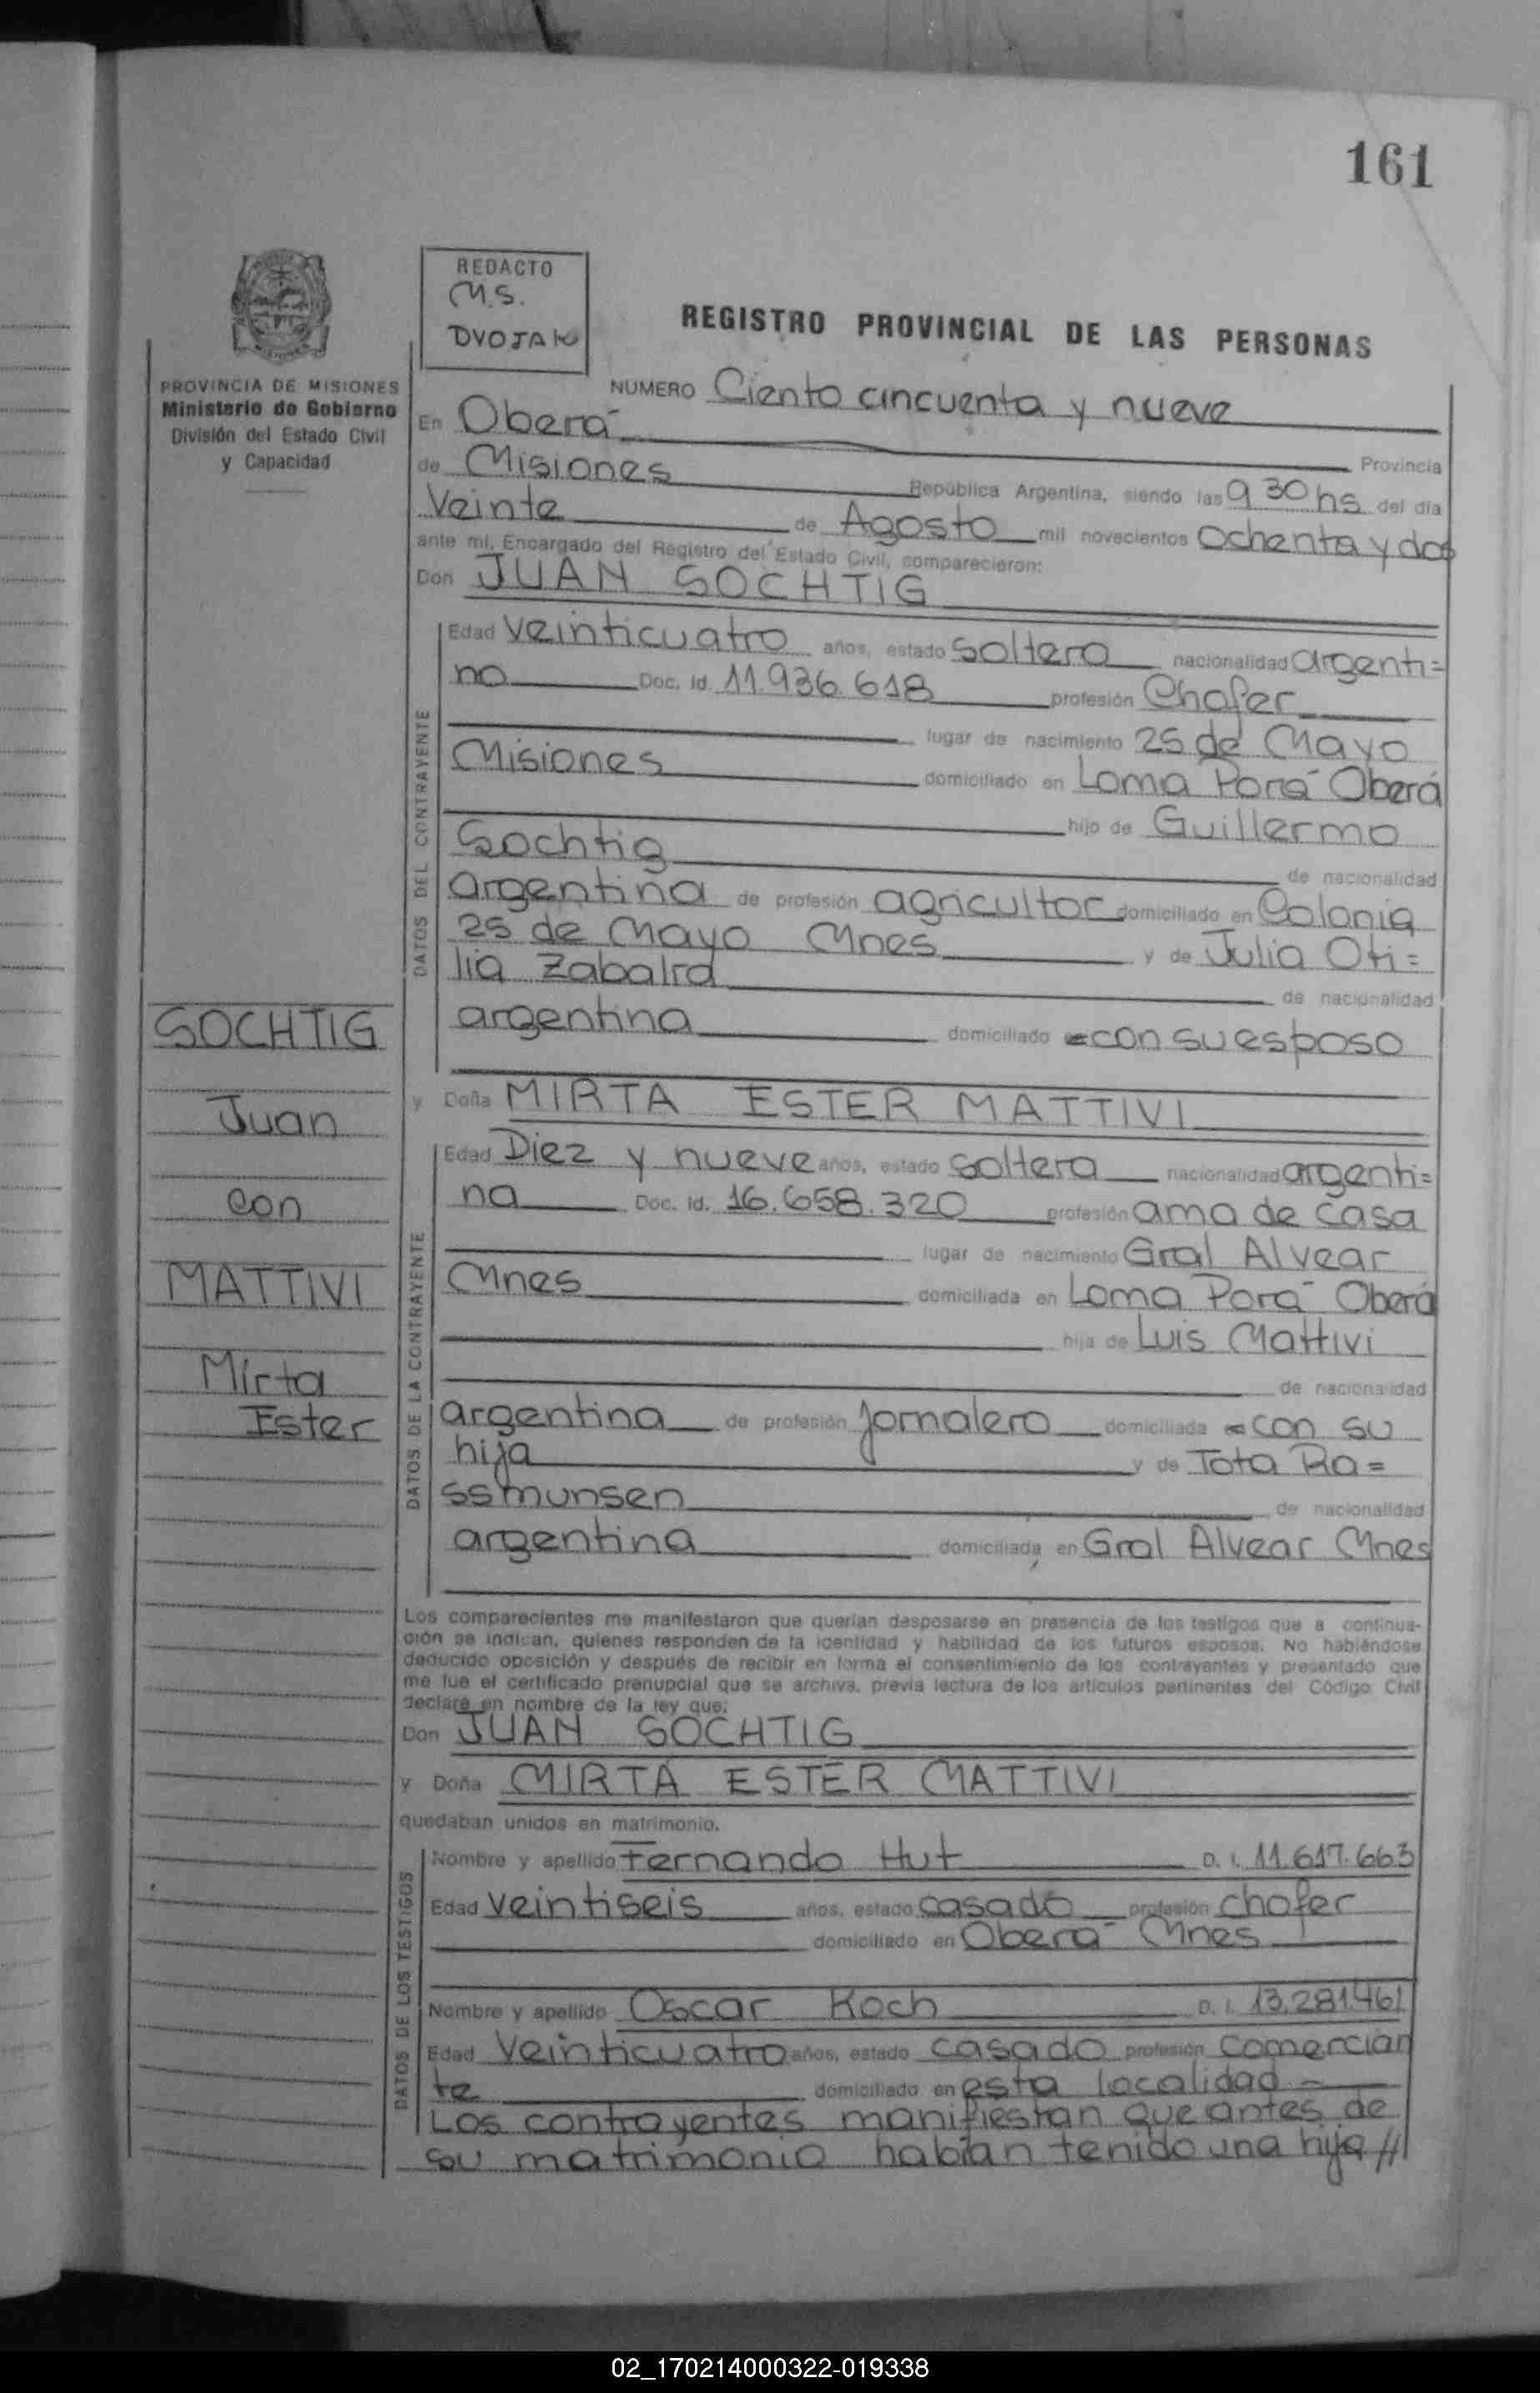 161
REDACTO
M.S.
DVOJAK
REGISTRO PROVINCIAL DE LAS PERSONAS
PROVINCIA DE MISIONES
Ministerio de Gobierno
División del Estado Civil
y Capacidad
NUMERO Ciento cincuenta y nueve
En Oberá Provincia
de Misiones República Argentina, siendo las 9 30 hs del día
Veinte de Agosto mil novecientos Ochenta y dos
ante mí, Encargado del Registro del Estado Civil, comparecieron:
Don JUAN SOCHTIG
DATOS DEL CONTRAYENTE
Edad Veinticuatro años, estado Soltero nacionalidad argenti=
no Doc. Id. 11.936.618 profesión Chofer
lugar de nacimiento 25 de Mayo
Misiones domiciliado en Loma Porá Oberá
hijo de Guillermo
Sochtig de nacionalidad
argentina de profesión agricultor domiciliado en Colonia
25 de Mayo Mnes y de Julia Oti=
lia Zabalrd de nacionalidad
argentina domiciliado con su esposo
SOCHTIG
Juan
con
MATTIVI
Mirta
Ester
y Doña MIRTA ESTER MATTIVI
DATOS DE LA CONTRAYENTE
Edad Diez y nueve años, estado soltera nacionalidad argenti=
na Doc. Id. 16.658.320 profesión ama de casa
lugar de nacimiento Gral Alvear
Mnes domiciliada en Loma Porá Oberá
hija de Luis Mattivi
de nacionalidad
argentina de profesión Jornalero domiciliada con su
hija y de Tota Ra=
ssmunsen de nacionalidad
argentina domiciliada en Gral Alvear Mnes
Los comparecientes me manifestaron que querían desposarse en presencia de los testigos que a continua-
ción se indican, quienes responden de la identidad y habilidad de los futuros esposos. No habiéndose
deducido oposición y después de recibir en forma el consentimiento de los contrayentes y presentado que
me fue el certificado prenupcial que se archiva, previa lectura de los artículos pertinentes del Código Civil
declaré en nombre de la ley que:
Don JUAN SOCHTIG
y Doña MIRTA ESTER MATTIVI
quedaban unidos en matrimonio.
DATOS DE LOS TESTIGOS
Nombre y apellido Fernando Hut D. I. 11.617.663
Edad Veintiseis años, estado casado profesión chofer
domiciliado en Oberá Mnes
Nombre y apellido Oscar Koch D. I. 13.281.461
Edad Veinticuatro años, estado casado profesión comercian
te domiciliado en esta localidad
Los contrayentes manifiestan que antes de
su matrimonio habían tenido una hija //
02_170214000322-019338